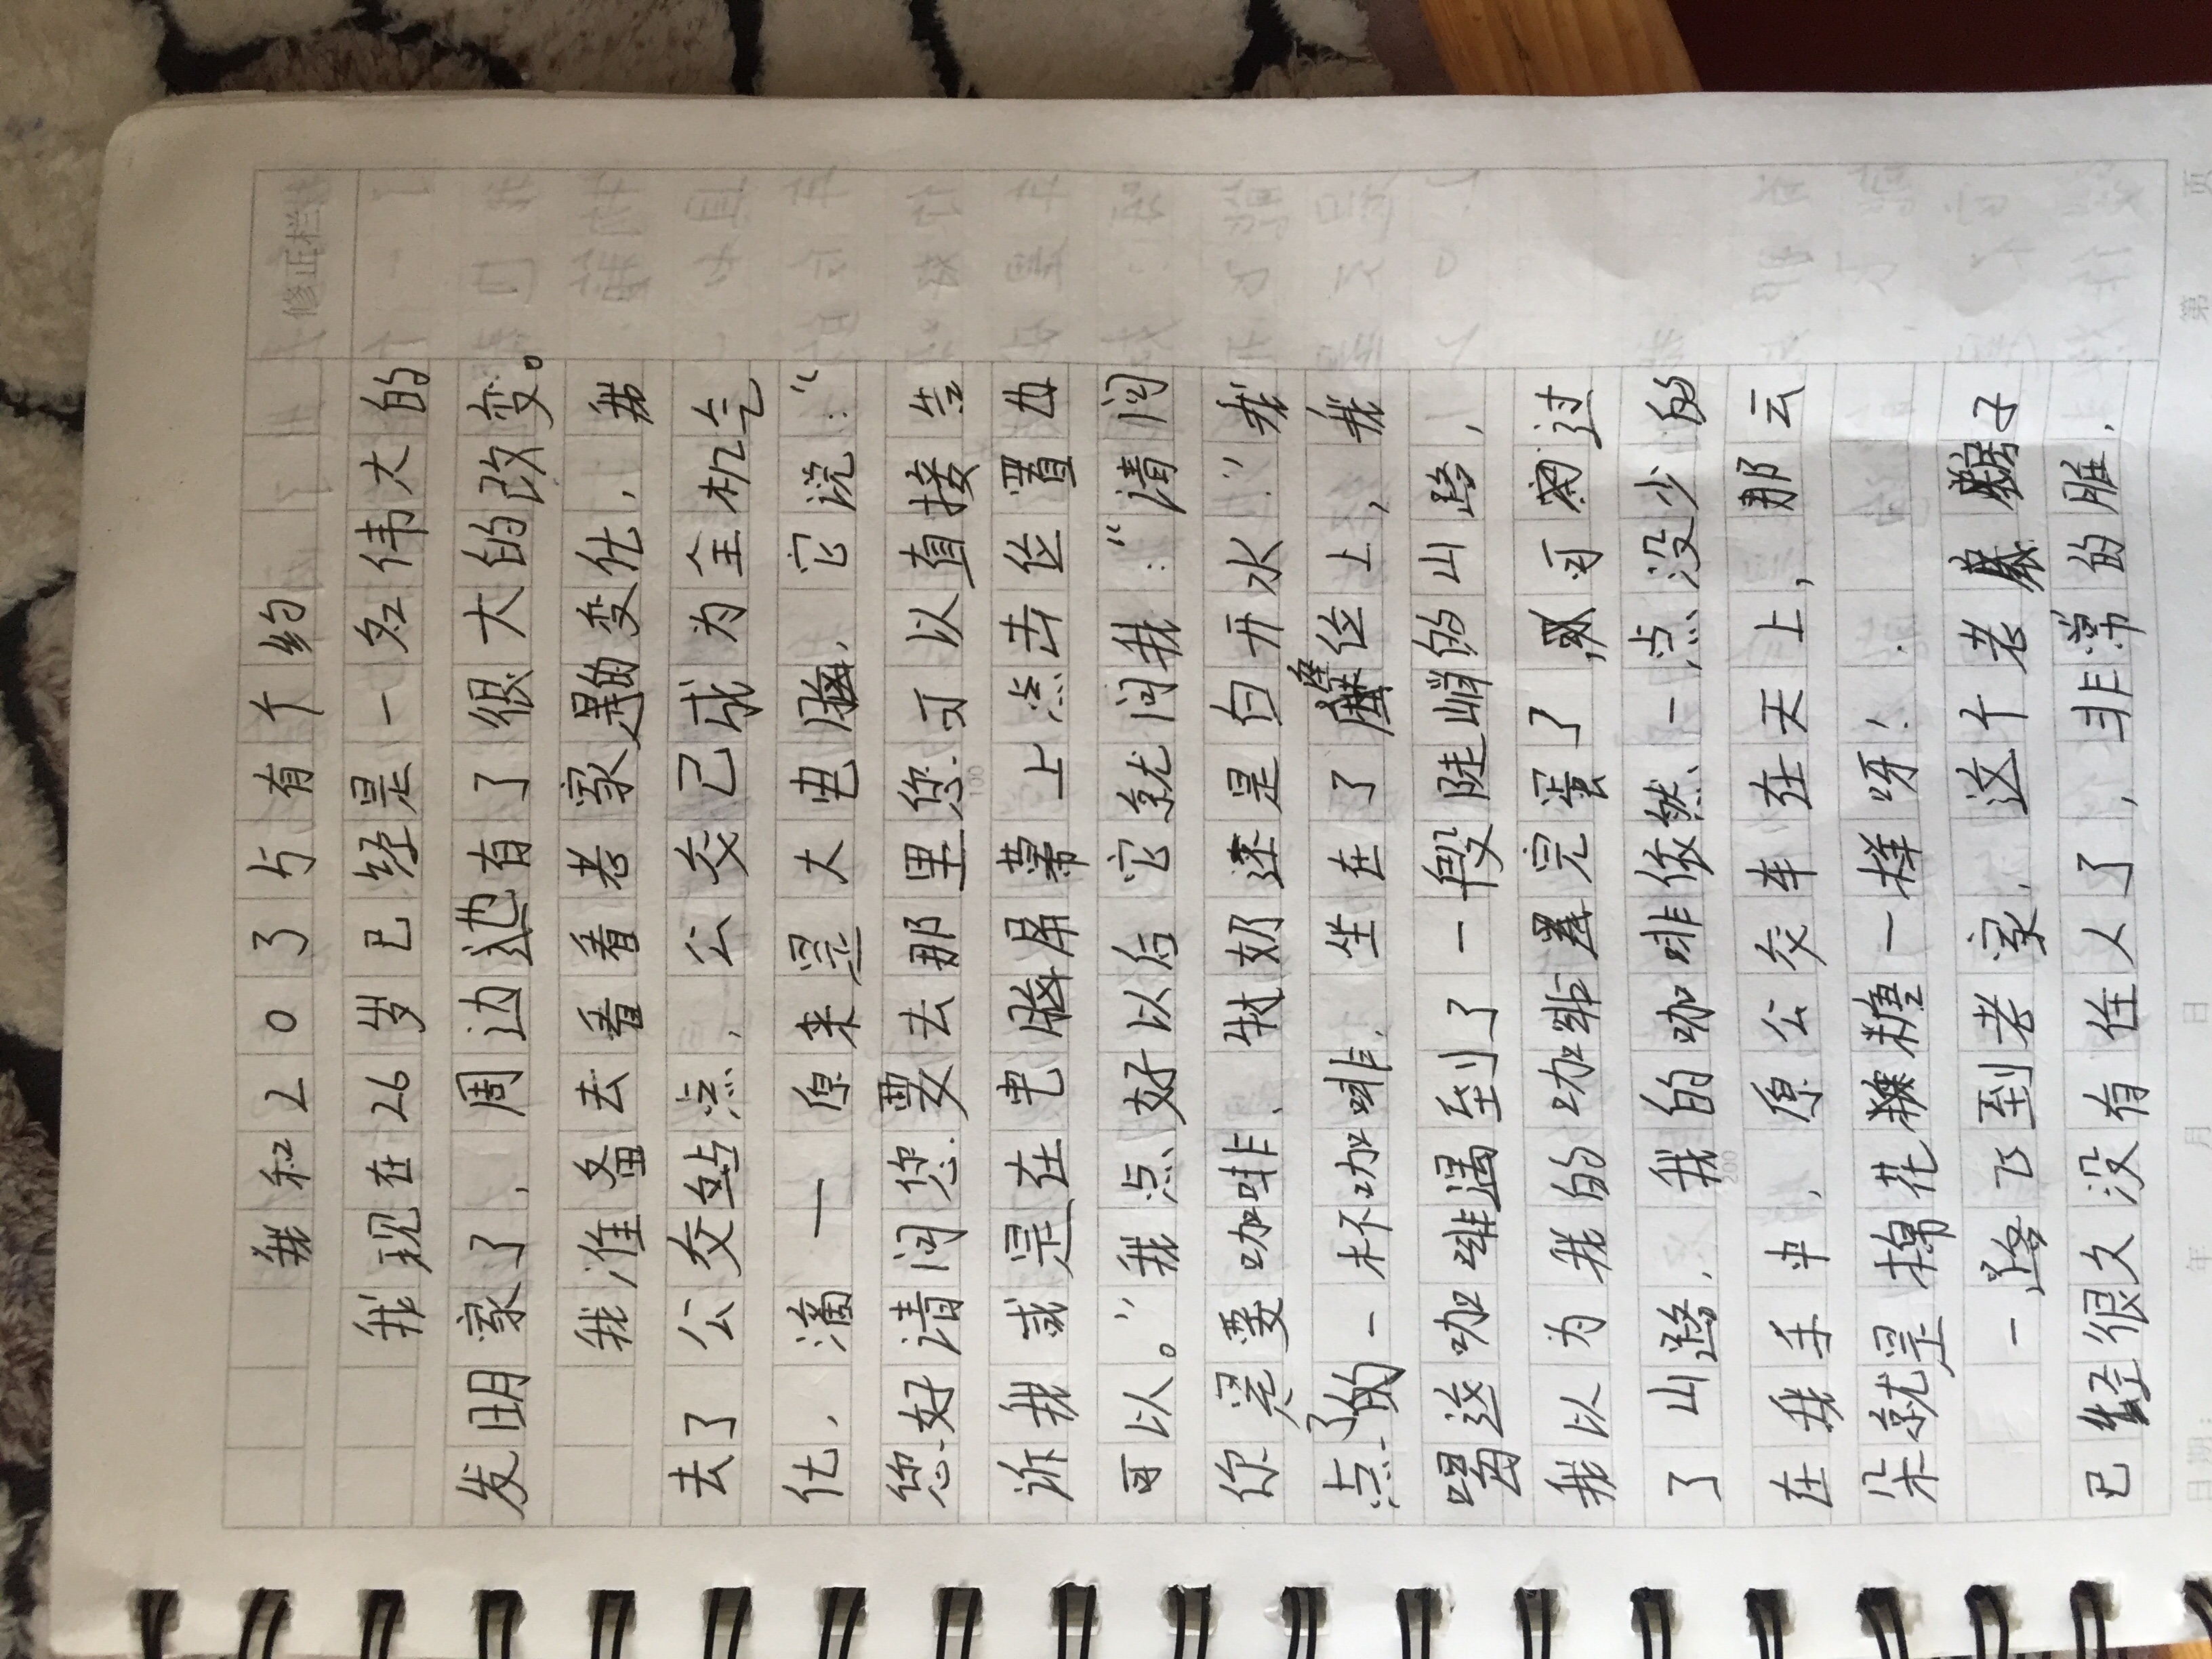 修正栏
我和2035有个约
我现在26岁已经是一名伟大的
发明家了，周边也有了很大的改变。
我准备去看看老家的变化，我
去了公交站点，公交已成为全机气
化，滴一原来是大电脑，它说：“
您好请问您要去那里您可以直接告
诉我或是在电脑屏幕上点击位置也
可以。”我点好以后它就问我：“请问
你是要咖啡、牛奶还是白开水？”我
点了的一杯咖啡，坐在了座位上，我
喝这咖啡遇到了一段陡峭的山路，
我以为我的咖啡要完蛋了可过
了山路，我的咖啡依然一点没少的
在我手中，原公交车在天上，那云
朵就是棉花糖一样呀！
一路飞到老家，这个老房子
已经很久没有住人了，非常的脏，
日期： 年 月 日 第 页